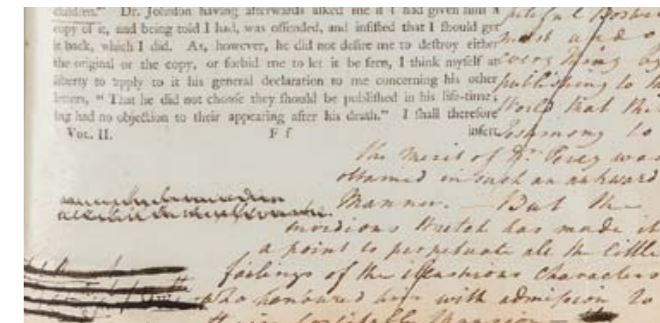 children." Dr. Johnson having afterwards asked me if I had given him a
copy of it, and being told I had, was offended, and insisted that I should get
it back, which I did. As, however, he did not desire me to destroy either
the original or the copy, or forbid me to let it be seen, I think myself at
liberty to apply to it his general declaration to me concerning his other
letters, "That he did not choose they should be published in his life-time;
ing had no objection to their appearing after his death." I shall therefore
Vol. II. F f insert
must and
every thing by
publishing to the
World that the
Testimony to
the Merit of Dr. Percy was
obtained in such an awkward
Manner. But the
invidious Wretch has made it
a point to perpetuate all the little
failings of the illustrious Characters
who honoured him with admission to
their